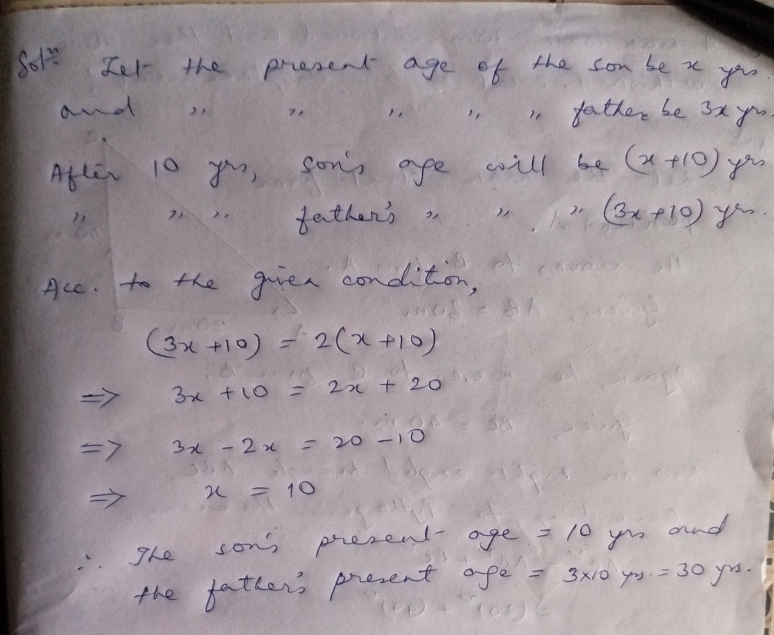 Solⁿ: Let the present age of the son be x yrs.
and ,, ,, ,, ,, ,, father be 3x yrs.
After 10 yrs, son's age will be (x+10) yrs
,, ,, ,, father's ,, ,, ,, (3x+10) yrs.
Acc. to the given condition,
(3x+10) = 2(x+10)
=> 3x+10 = 2x + 20
=> 3x - 2x = 20 - 10
=> x = 10
∴ The son's present age = 10 yrs and
the father's present age = 3x10 yrs. = 30 yrs.